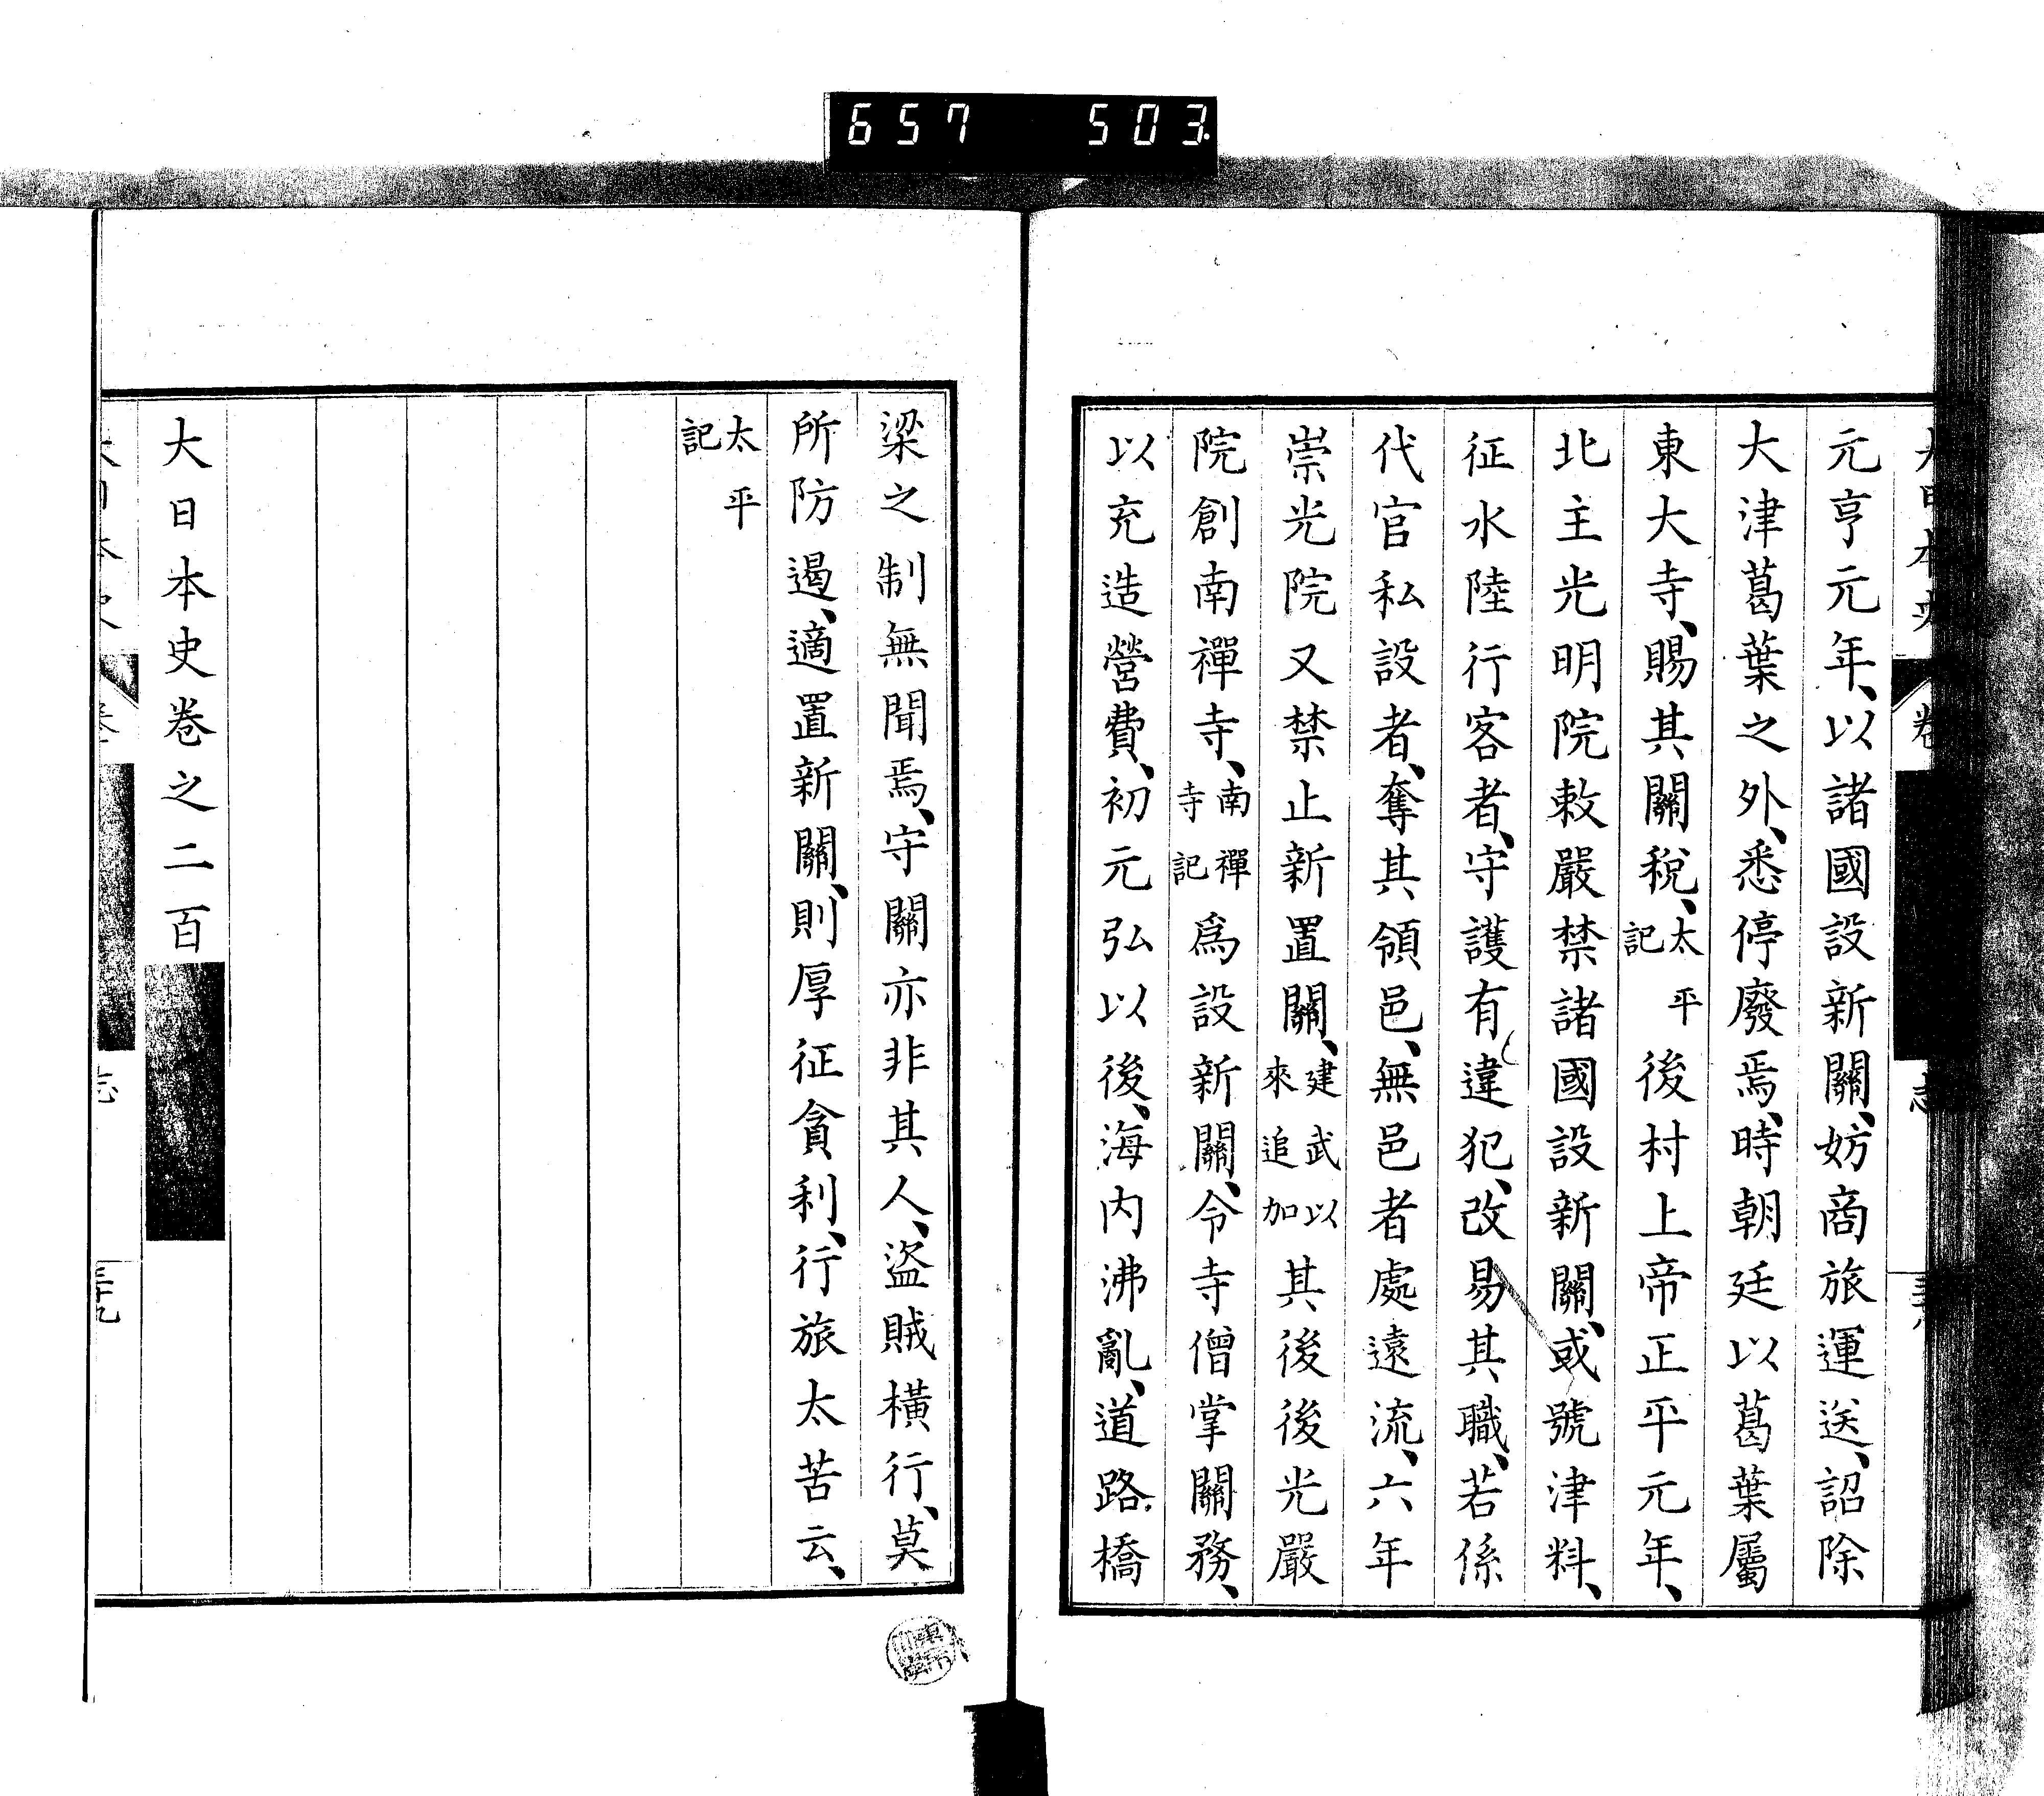 657 503
元亨元年、以諸國設新關、妨商旅運送、詔除
大津葛葉之外、悉停廢焉、時朝廷以葛葉屬
東大寺、賜其關稅、太平記後村上帝正平元年、
北主光明院敕嚴禁諸國設新關、或號津料、
征水陸行客者、守護有違犯、改易其職、若係
代官私設者、奪其領邑、無邑者處遠流、六年
崇光院又禁止新置關、建武以來追加其後後光嚴
院創南禪寺、南禪寺記爲設新關、令寺僧掌關務、
以充造營費、初元弘以後、海內沸亂、道路橋
梁之制無聞焉、守關亦非其人、盜賊橫行、莫
所防遏、適置新關、則厚征貪利、行旅太苦云、
太平記
大日本史卷之二百